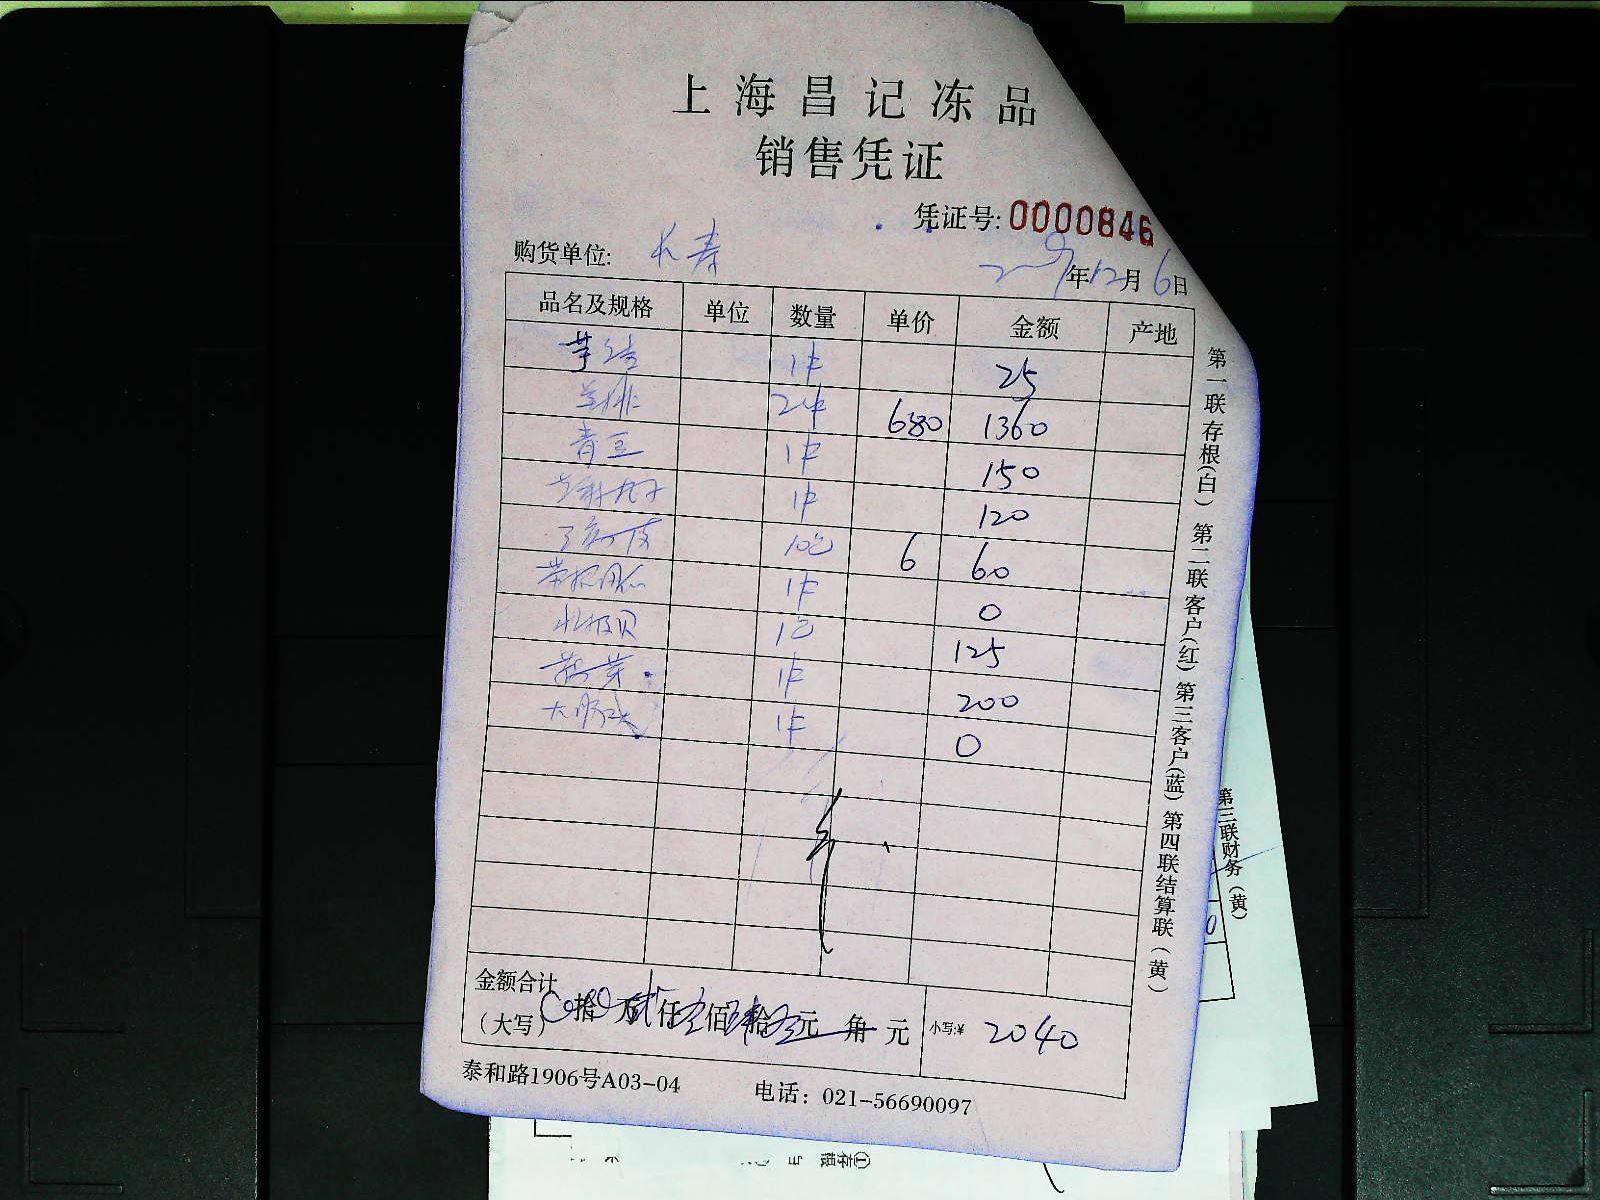 上海昌记冻品
销售凭证
凭证号: 0000846
购货单位: 长寿
年12月6日
品名及规格 单位 数量 单价 金额 产地
1件 25
2件 680 1360
青豆 1件 150
丸子 1件 120
10包 6 60
1件 0
北极贝 1包 125
1件 200
1件 0
金额合计
(大写) 拾 万 贰仟 佰 肆拾 元 角 元 小写:¥ 2040
泰和路1906号A03-04 电话: 021-56690097
第一联存根(白) 第二联客户(红) 第三客户(蓝) 第四联结算联(黄)
第三联财务(黄)